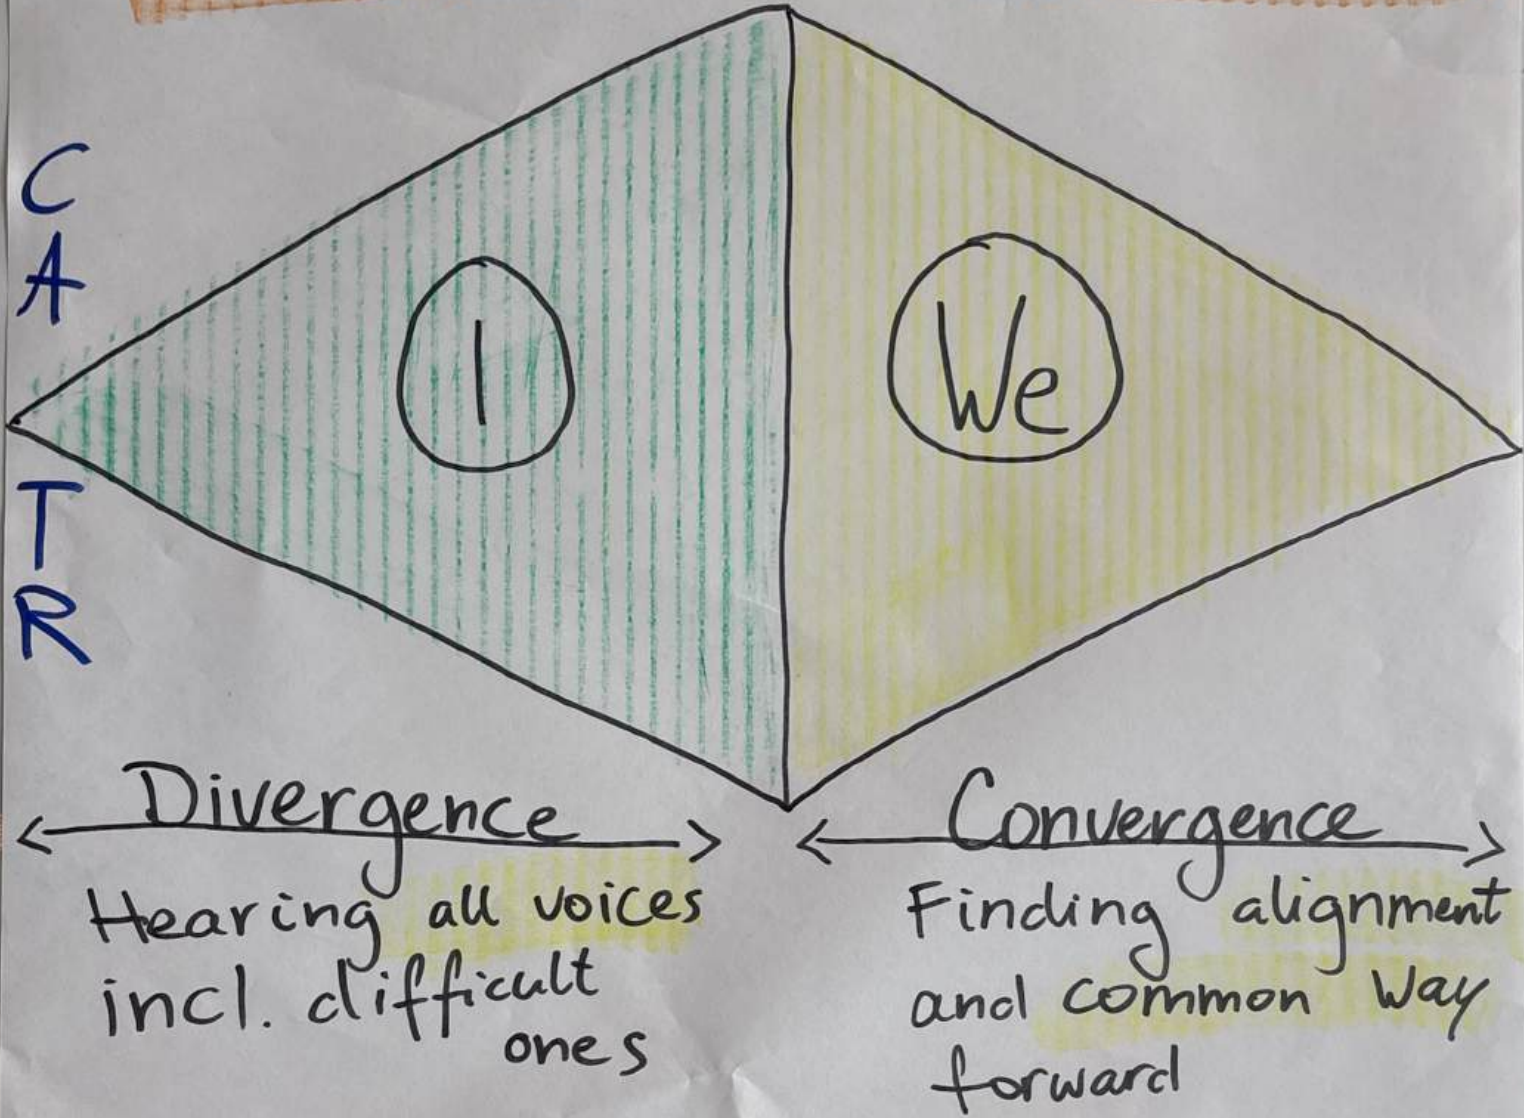 C
A
T
R
I
We
Divergence
Hearing all voices
incl. difficult
ones
Convergence
Finding alignment
and common way
forward